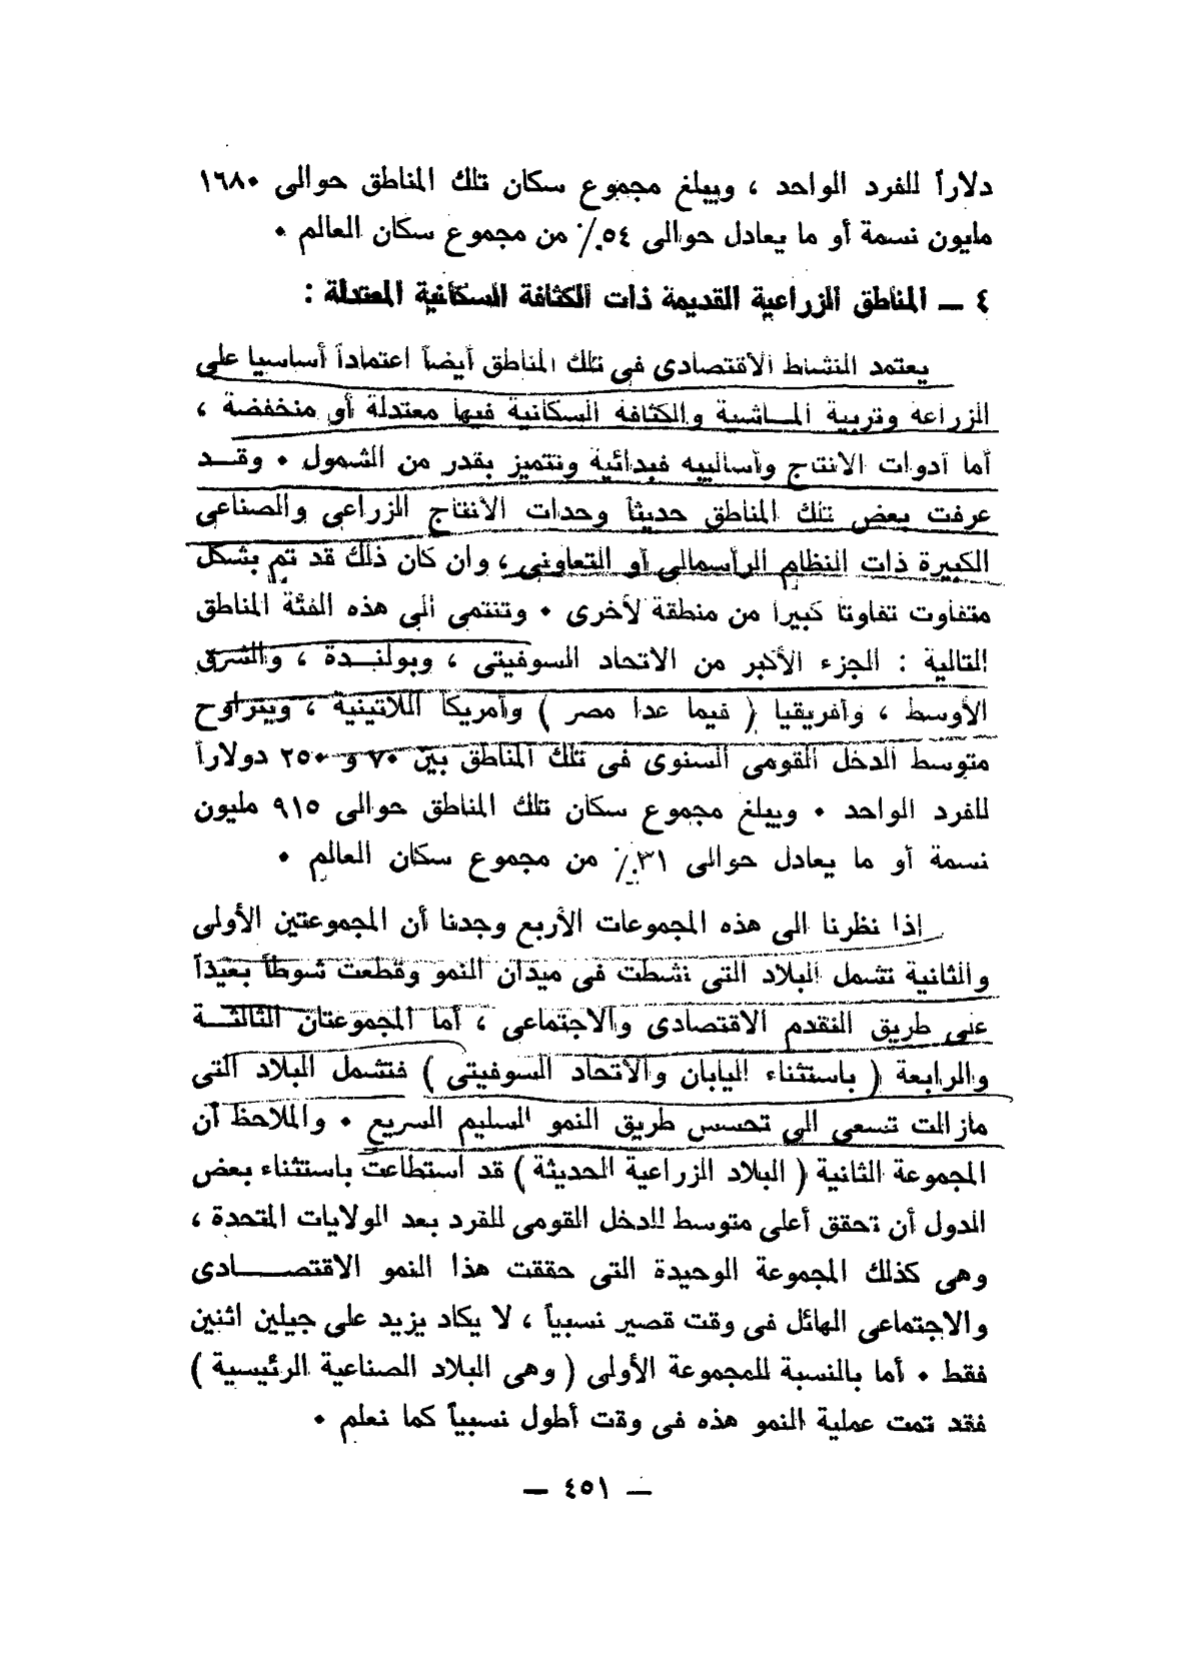 دلاراً للفرد الواحد ، ويبلغ مجموع سكان تلك المناطق حوالى ١٦٨٠
مليون نسمة أو ما يعادل حوالى ٥٤٪ من مجموع سكان العالم ٠
٤ ــ المناطق الزراعية القديمة ذات الكثافة السكانية المعتدلة :
يعتمد النشاط الاقتصادى فى تلك المناطق أيضاً اعتماداً أساسيا على
الزراعة وتربية المــاشية والكثافة السكانية فيها معتدلة أو منخفضة ،
أما أدوات الانتاج وأساليبه فبدائية وتتميز بقدر من الشمول ٠ وقــد
عرفت بعض تلك المناطق حديثاً وحدات الانتاج الزراعى والصناعى
الكبيرة ذات النظام الرأسمالى أو التعاونى ، وان كان ذلك قد تم بشكل
متفاوت تفاوتا كبيرا من منطقة لأخرى ٠ وتنتمى الى هذه الفئة المناطق
التالية : الجزء الأكبر من الاتحاد السوفيتى ، وبولنــدة ، والشرق
الأوسط ، وأفريقيا ( فيما عدا مصر ) وأمريكا اللاتينية ، ويتراوح
متوسط الدخل القومى السنوى فى تلك المناطق بين ٧٠ و ٢٥٠ دولاراً
للفرد الواحد ٠ ويبلغ مجموع سكان تلك المناطق حوالى ٩١٥ مليون
نسمة أو ما يعادل حوالى ٣١٪ من مجموع سكان العالم ٠
إذا نظرنا الى هذه المجموعات الأربع وجدنا أن المجموعتين الأولى
والثانية تشمل البلاد التى نشطت فى ميدان النمو وقطعت شوطاً بعيداً
على طريق التقدم الاقتصادى والاجتماعى ، أما المجموعتان الثالثــة
والرابعة ( باستثناء اليابان والاتحاد السوفيتى ) فتشمل البلاد التى
مازالت تسعى الى تحسس طريق النمو السليم السريع ٠ والملاحظ أن
المجموعة الثانية ( البلاد الزراعية الحديثة ) قد استطاعت باستثناء بعض
الدول أن تحقق أعلى متوسط للدخل القومى للفرد بعد الولايات المتحدة ،
وهى كذلك المجموعة الوحيدة التى حققت هذا النمو الاقتصــــادى
والاجتماعى الهائل فى وقت قصير نسبياً ، لا يكاد يزيد على جيلين اثنين
فقط ٠ أما بالنسبة للمجموعة الأولى ( وهى البلاد الصناعية الرئيسية )
فقد تمت عملية النمو هذه فى وقت أطول نسبياً كما نعلم ٠
— ٤٥١ —